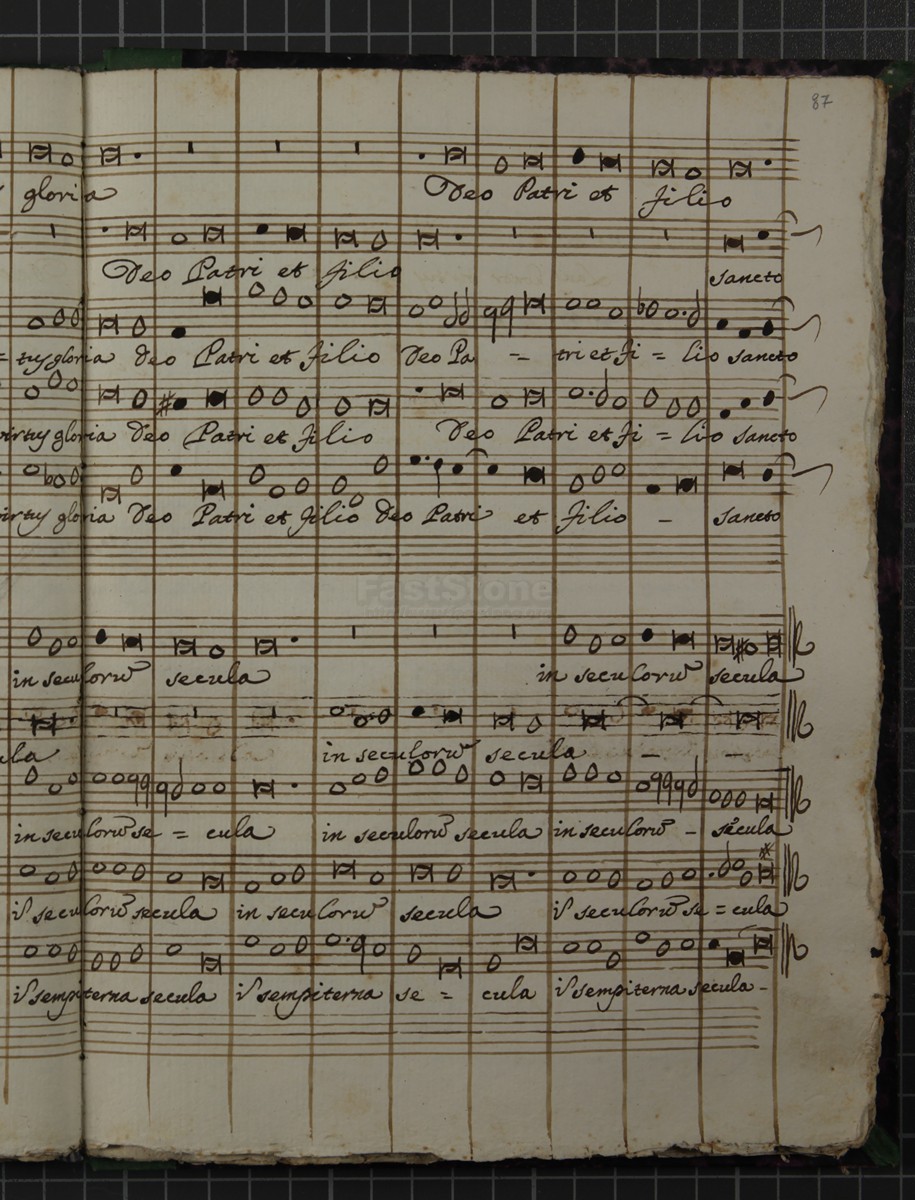 87
gloria Deo Patri et filio
Deo Patri et filio sancto
= tus gloria deo Patri et filio Deo Pa - tri et fi = lio sancto
virtus gloria Deo Patri et filio Deo Patri et fi = lio sancto
virtus gloria Deo Patri et filio Deo Patri et filio - sancto
FastStone
in seculorũ secula in seculorũ secula
ula in seculorũ secula - -
in seculorũ se = cula in seculorũ secula in seculorũ - secula
ĩ seculorũ secula in seculorũ secula ĩ seculorũ se = cula
ĩ sempiterna secula ĩ sempiterna se = cula ĩ sempiterna secula -